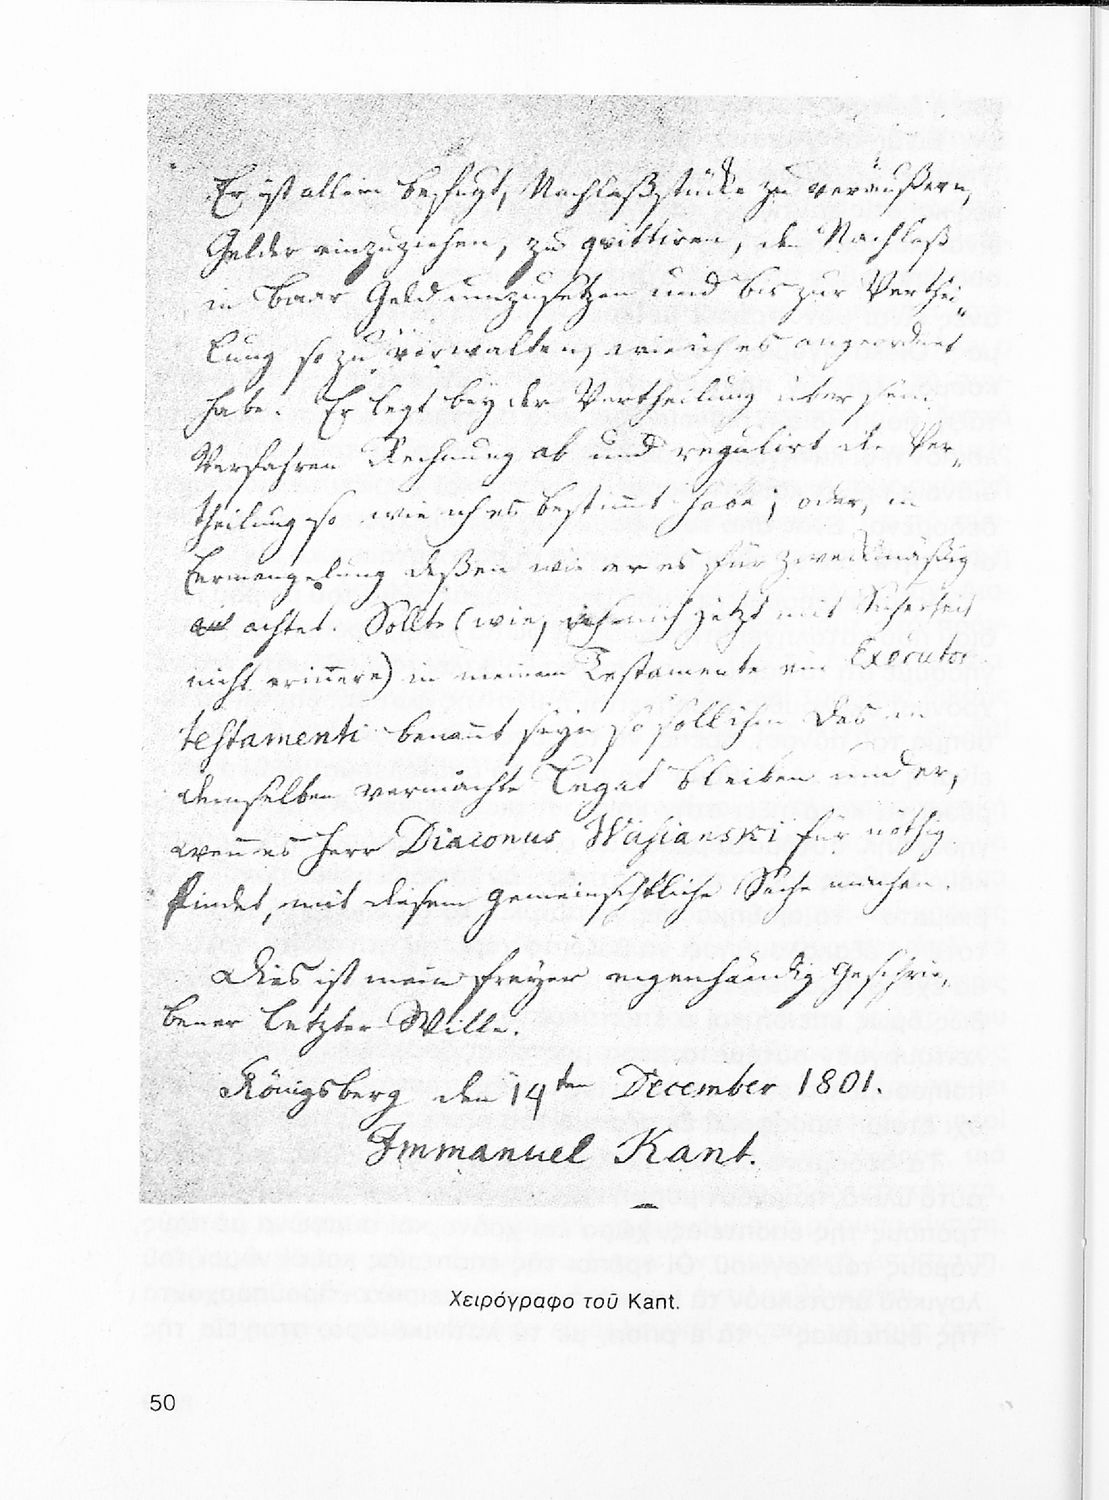 Er ist allein befugt, Nachlaßstücke zu veräußern,
Gelder einzuziehen, zu qvittiren, den Nachlaß
in baar Geld umzusetzen und bis zur Verthei-
lung so zu verwalten, wie ich es angeordnet
habe. Er legt bey der Vertheilung über sein
Verfahren Rechnung ab und regulirt die Ver-
theilung so wie ich es bestimmt habe; oder, in
Ermangelung deßen wie er es für zweckmäßig
achtet. Sollte (wie, ich mich jetzt mit Sicherheit
nicht erinnere) in meinem Testamente ein Executor
testamenti benannt seyn so soll ihm das in
demselben vermachte Legat bleiben und er,
wenn es Herr Diaconus Wasianski für nöthig
findet, mit diesem gemeinschftliche Sache machen.
Dies ist mein freyer eigenhändig geschrie-
bener letzter Wille.
Königsberg den 14ten December 1801.
Immanuel Kant.
Χειρόγραφο τοῦ Kant.
50